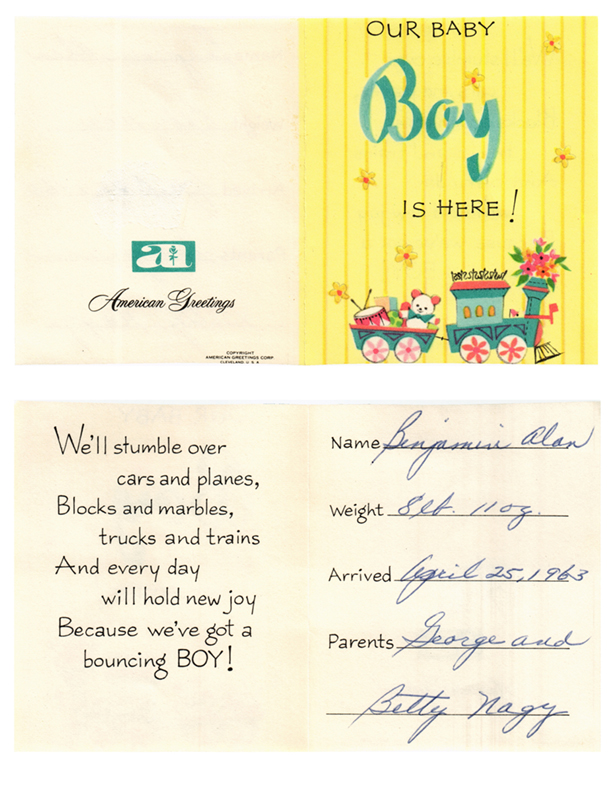 OUR BABY
Boy
IS HERE!
a
American Greetings
COPYRIGHT
AMERICAN GREETINGS CORP
CLEVELAND U. S. A.
We'll stumble over
cars and planes,
Blocks and marbles,
trucks and trains
And every day
will hold new joy
Because we've got a
bouncing BOY!
Name Benjamin Alan
Weight 8 lb. 11 oz.
Arrived April 25, 1963
Parents George and
Betty Nagy